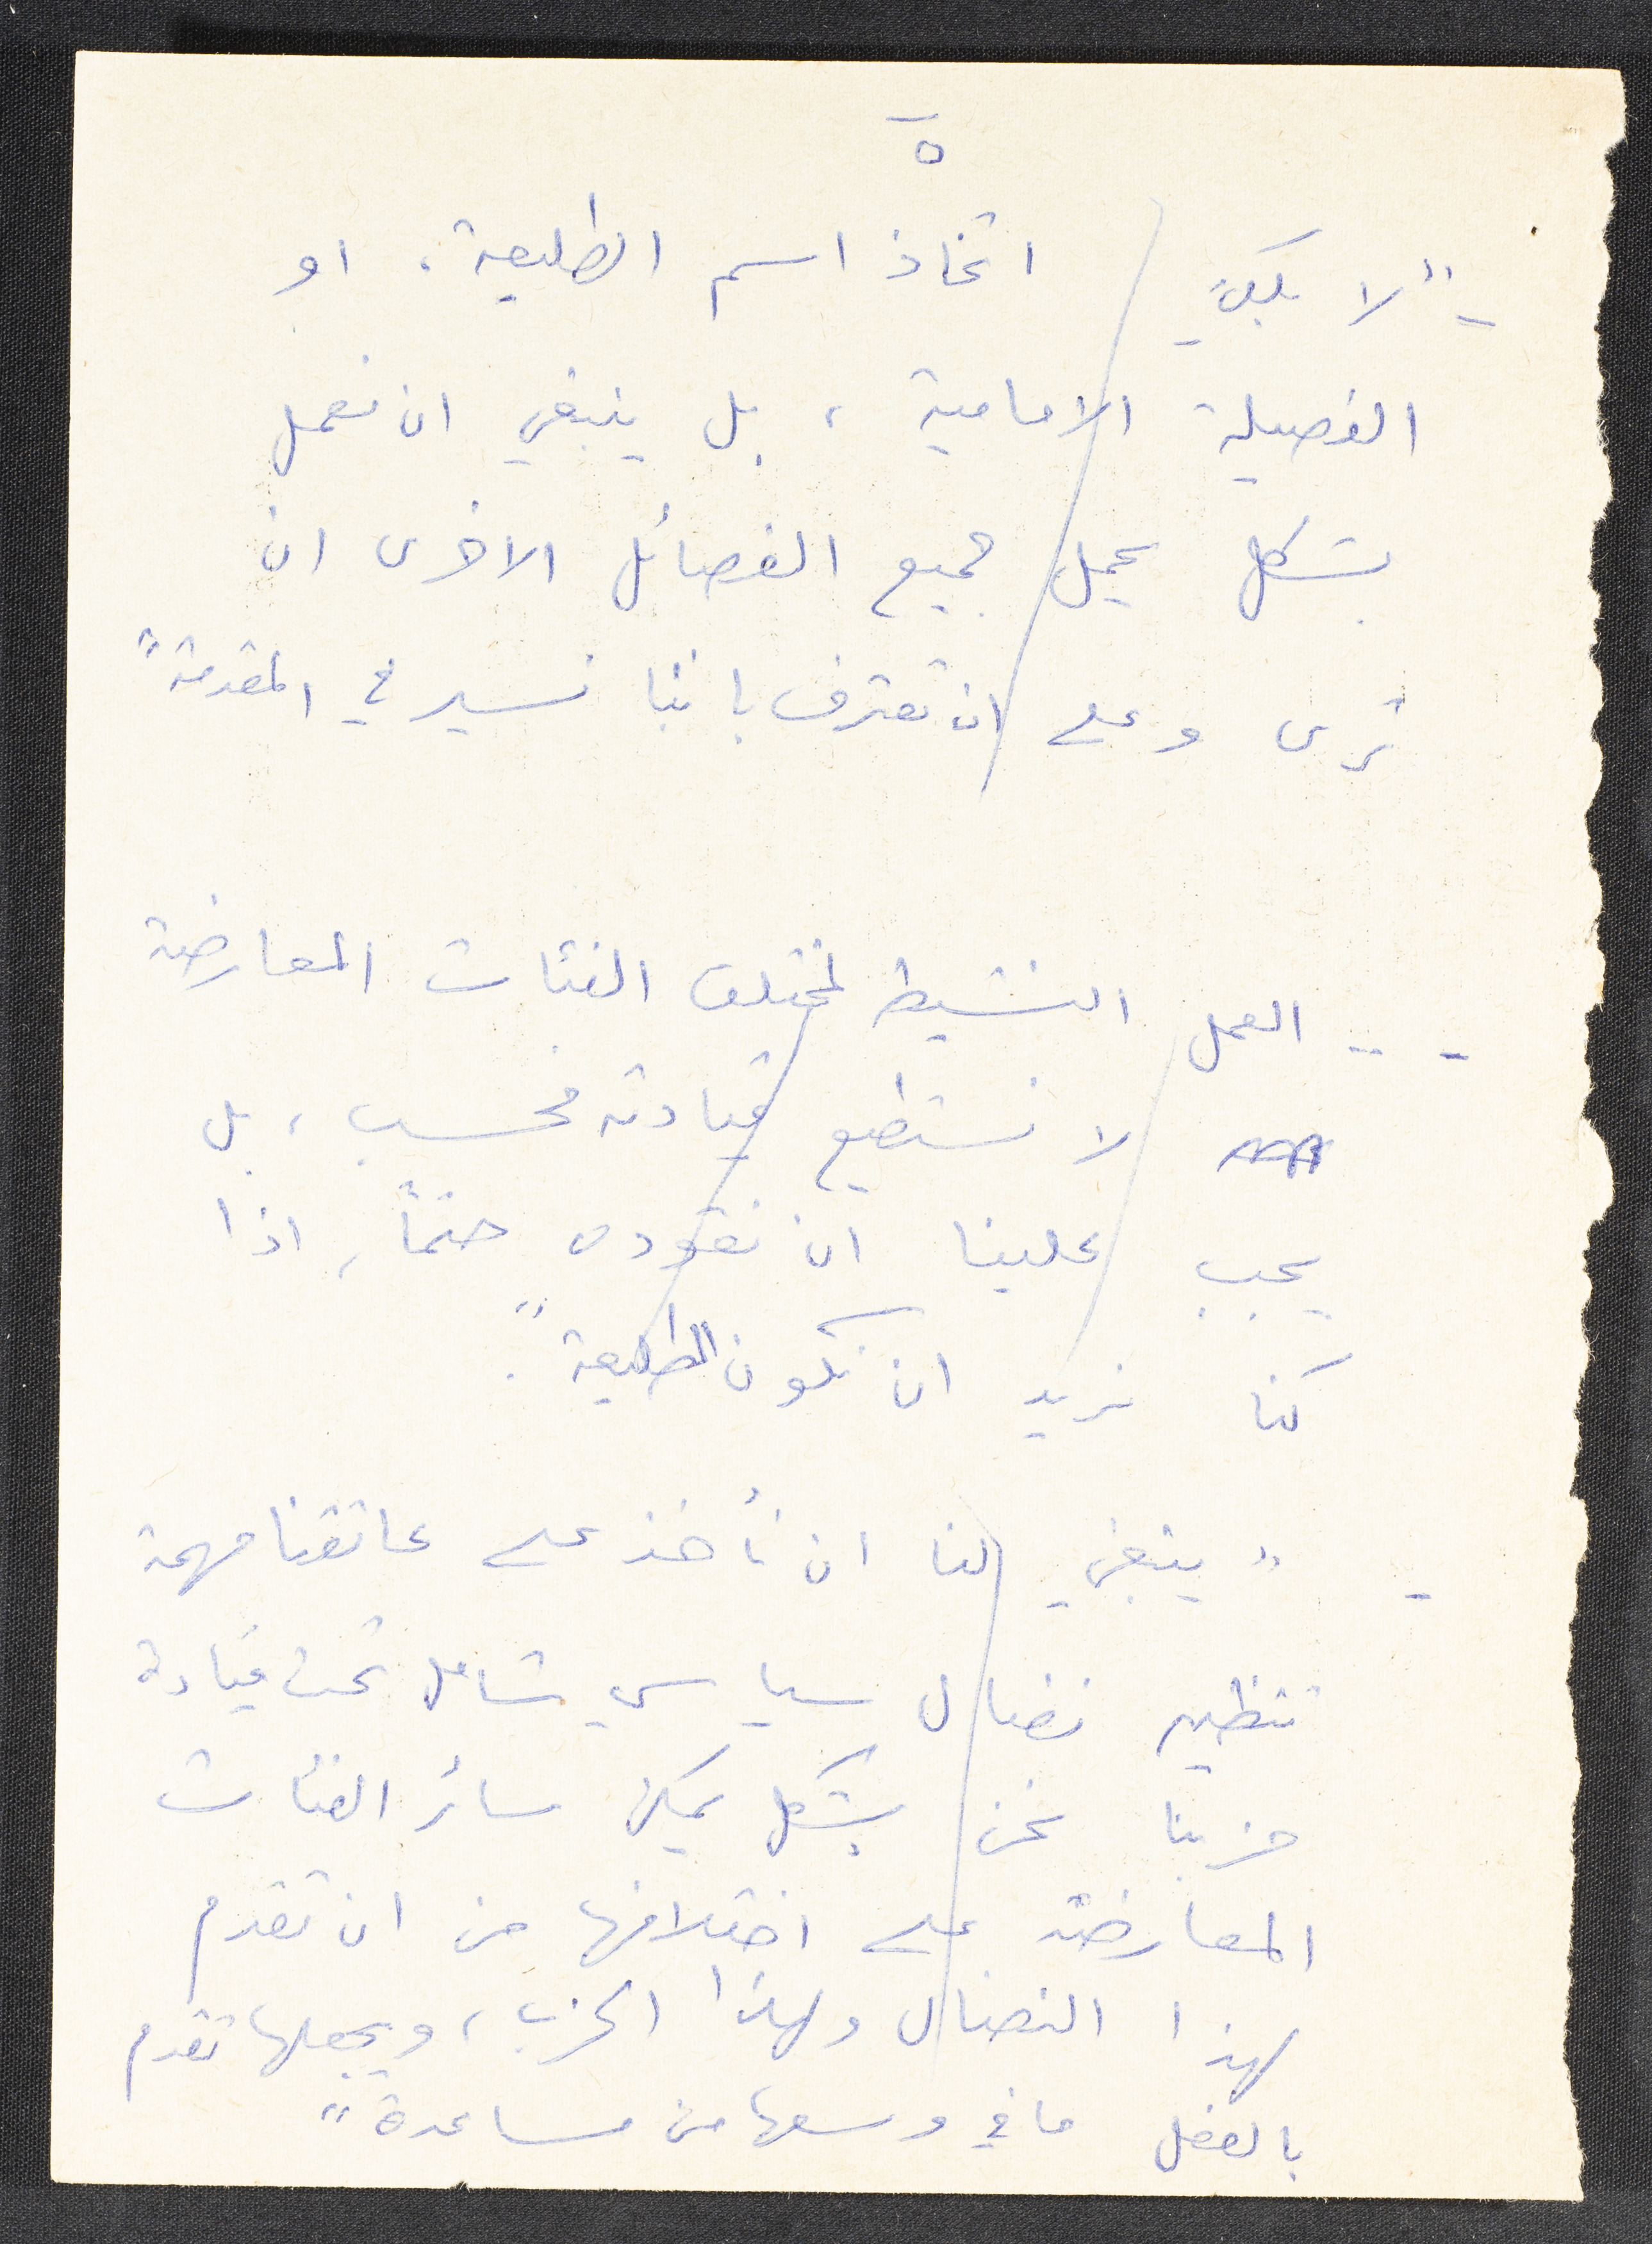 ٥
- "لا يكفي اتخاذ اسم الطليعة، او
الفصيلة الامامية، بل ينبغي ان نعمل
بشكل يحمل جميع الفصائل الاخرى ان
ترى وعلى ان تعترف باننا نسير في المقدمة"
- " العمل النشيط لمختلف الفئات المعارضة
لا نستطيع قيادته فحسب، بل
يجب علينا ان نقوده حتماً، اذا
كنا نريد ان نكون الطليعة".
- " ينبغي لنا ان نأخذ على عاتقنا مهمة
تنظيم نضال سياسي شامل تحت قيادة
حزبنا نحن بشكل يمكن سائر الفئات
المعارضة على اختلافها من ان تقدم
لهذا النضال ولهذا الحزب، ويجعلها تقدم
بالفعل ما في وسعها من مساعدة"